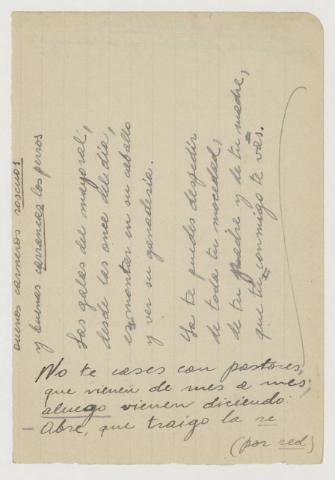 buenos carneros roscuos
y buenas carrancas los perros
Las galas del mayoral,
desde las once del día,
es montar en su caballo
y ver su ganadería.
Ya te puedes despedir
de toda tu mocedad,
de tu padre y de tu madre,
que tú conmigo te vas.
No te cases con pastores,
que vienen de mes a mes;
aluego vienen diciendo:
– Abre, que traigo la re
(por red)